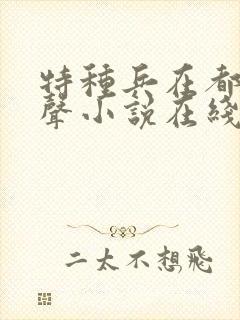 特种兵在都
聲小說在綫
二太不想飛